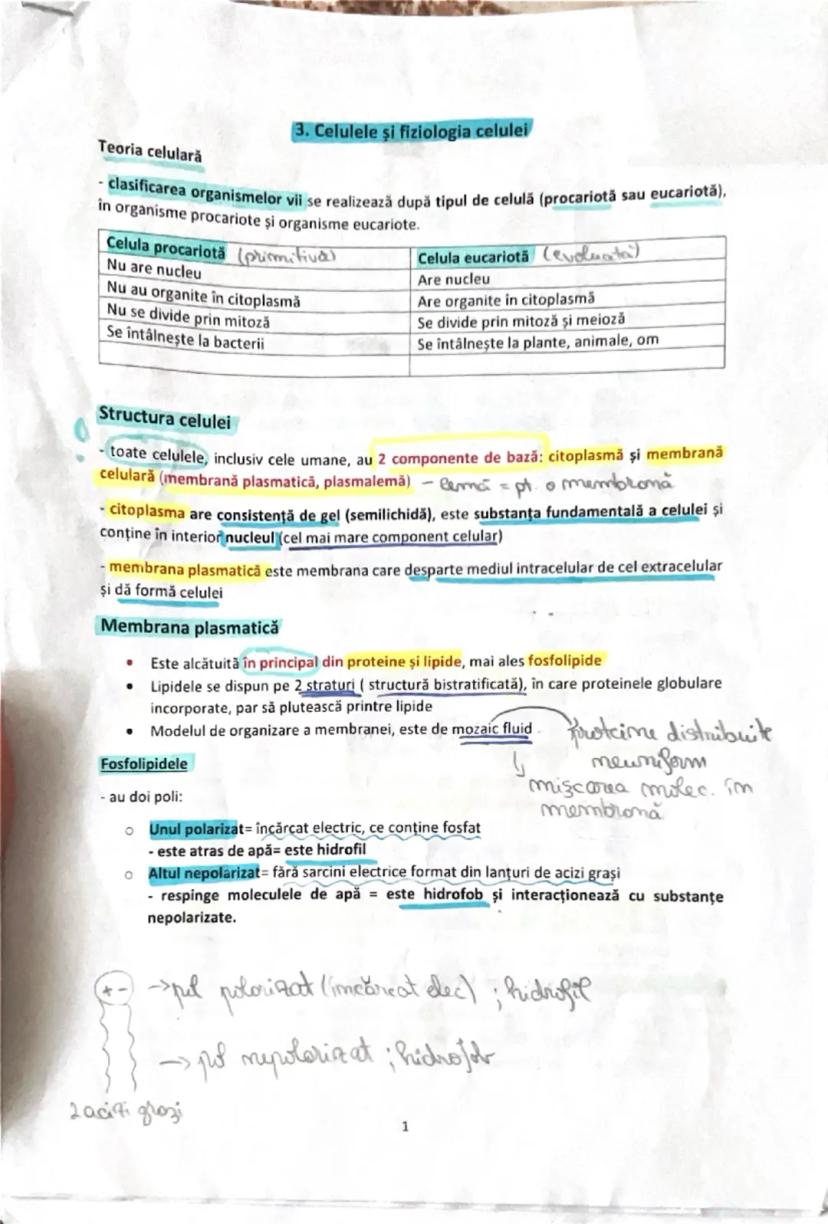 3. Celulele și fiziologia celulei
Teoria celulară
- clasificarea organismelor vii se realizează după tipul de celulă (procariotă sau eucariotă),
în organisme procariote și organisme eucariote.
Celula procariotă (primitivă) Celula eucariotă (evoluată)
Nu are nucleu Are nucleu
Nu au organite în citoplasmă Are organite în citoplasmă
Nu se divide prin mitoză Se divide prin mitoză și meioză
Se întâlnește la bacterii Se întâlnește la plante, animale, om
Structura celulei
- toate celulele, inclusiv cele umane, au 2 componente de bază: citoplasmă și membrană
celulară (membrană plasmatică, plasmalemă) - lemă = pt. o membrană
- citoplasma are consistență de gel (semilichidă), este substanța fundamentală a celulei și
conține în interior nucleul (cel mai mare component celular)
- membrana plasmatică este membrana care desparte mediul intracelular de cel extracelular
și dă formă celulei
Membrana plasmatică
• Este alcătuită în principal din proteine și lipide, mai ales fosfolipide
• Lipidele se dispun pe 2 straturi ( structură bistratificată), în care proteinele globulare
incorporate, par să plutească printre lipide
• Modelul de organizare a membranei, este de mozaic fluid
proteine distribuite
neuniform
↳ mișcarea molec. în
membrană
Fosfolipidele
- au doi poli:
o Unul polarizat= încărcat electric, ce conține fosfat
- este atras de apă= este hidrofil
o Altul nepolarizat= fără sarcini electrice format din lanțuri de acizi grași
- respinge moleculele de apă = este hidrofob și interacționează cu substanțe
nepolarizate.
+ - → pol polarizat (încărcat elec) ; hidrofil
→ pol nepolarizat ; hidrofob
2 acizi grași
1